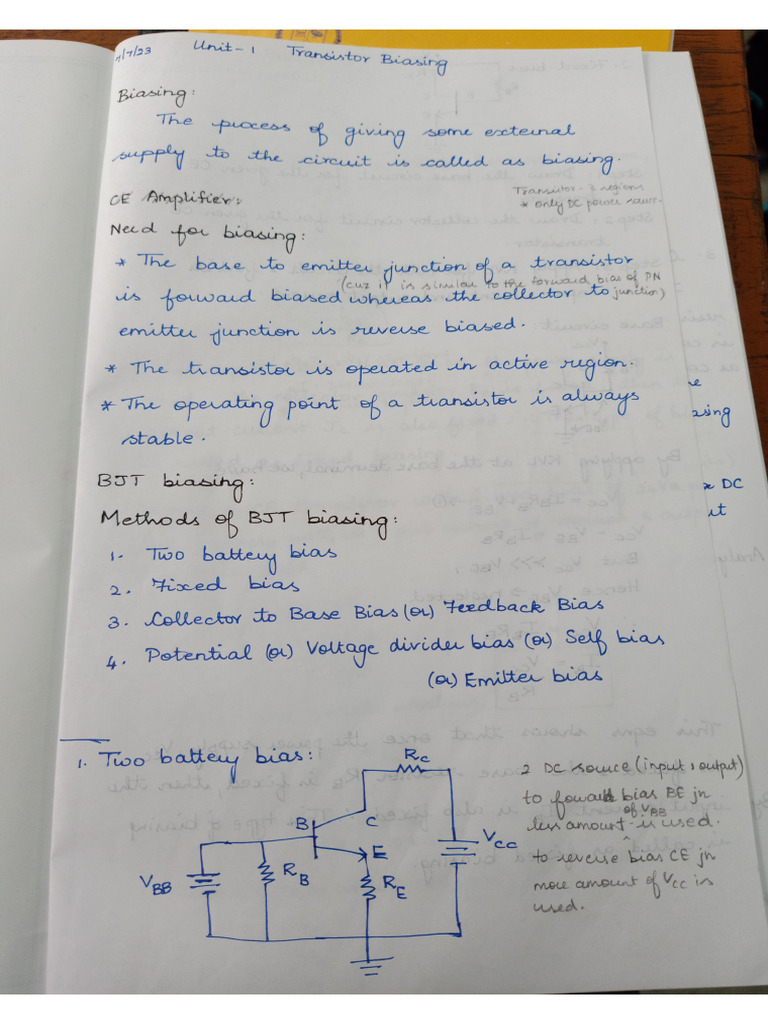 /7/23 Unit-1 Transistor Biasing
Biasing:
The process of giving some external
supply to the circuit is called as biasing.
CE Amplifier:
Transistor - 3 regions
* only DC power
Need for biasing:
* The base to emitter junction of a transistor
(cuz it is similar to the forward bias of PN
is forward biased whereas the collector to junction)
emitter junction is reverse biased.
* The transistor is operated in active region.
* The operating point of a transistor is always
stable.
BJT biasing:
Methods of BJT biasing:
1. Two battery bias
2. Fixed bias
3. Collector to Base Bias (or) Feedback Bias
4. Potential (or) Voltage divider bias (or) Self bias
(or) Emitter bias
1. Two battery bias:
RC
B
C
E
VCC
VBB
RB
RE
2 DC source (input, output)
to forward bias BE jn
less amount of VBB is used.
to reverse bias CE jn
more amount of VCC is
used.
asing
DC
ut